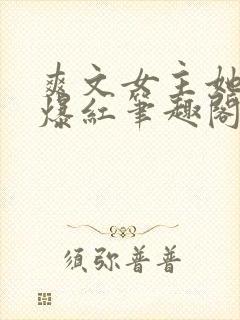 爽文女主她
爆红笔趣阁
须弥普普